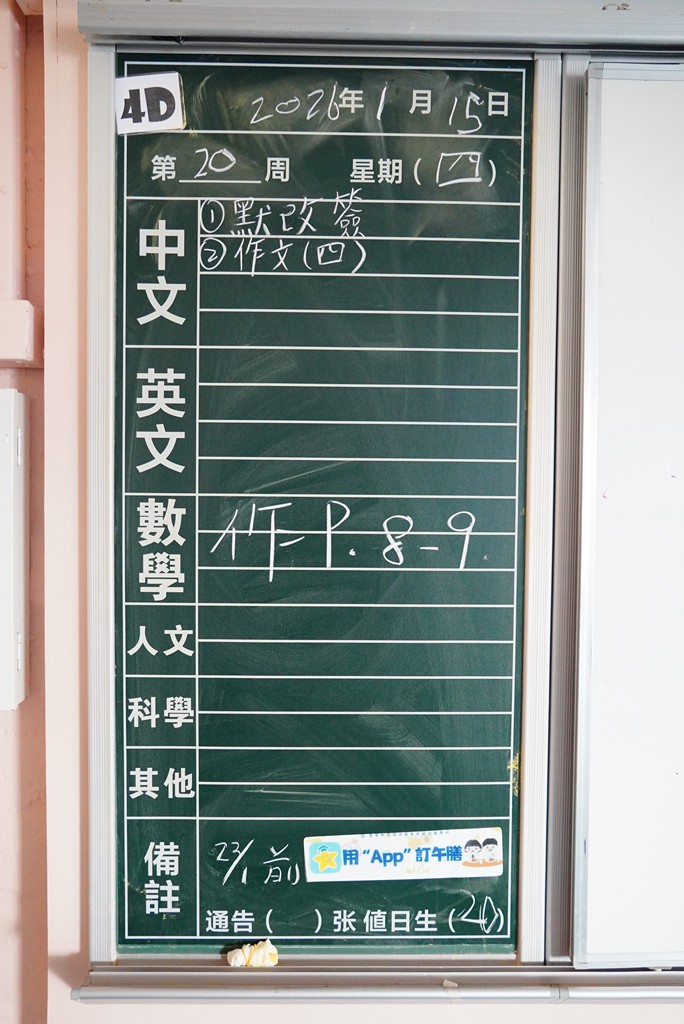 4D
2026年1月15日
第20周 星期(四)
中文
①默改簽
②作文(四)
英文
數學
作一P.8-9
人文
科學
其他
備註
23/1前
用“App”訂午膳
通告( )张 值日生(20)